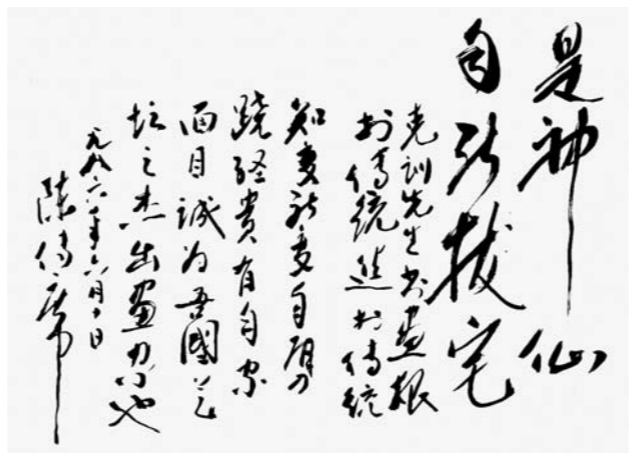 是神仙
自能拔宅
克訓先生书畫根
於傳統進於傳統
知变能变自闢
蹊径貴有自家
面目誠为吾國艺
坛之杰出畫家也
六年六月十日
陳傳席